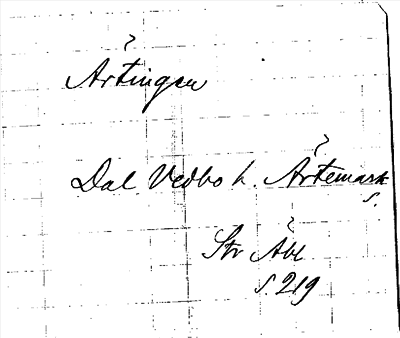 Ärtingen
Dal. Vedbo h. Ärtemark
s.
Str Äbl
s. 219